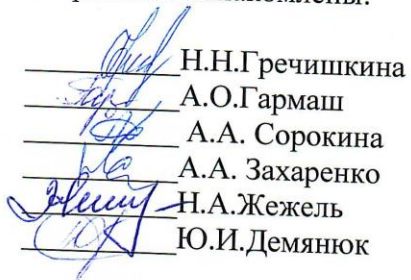 Н.Н.Гречишкина
А.О.Гармаш
А.А. Сорокина
А.А. Захаренко
Н.А.Жежель
Ю.И.Демянюк